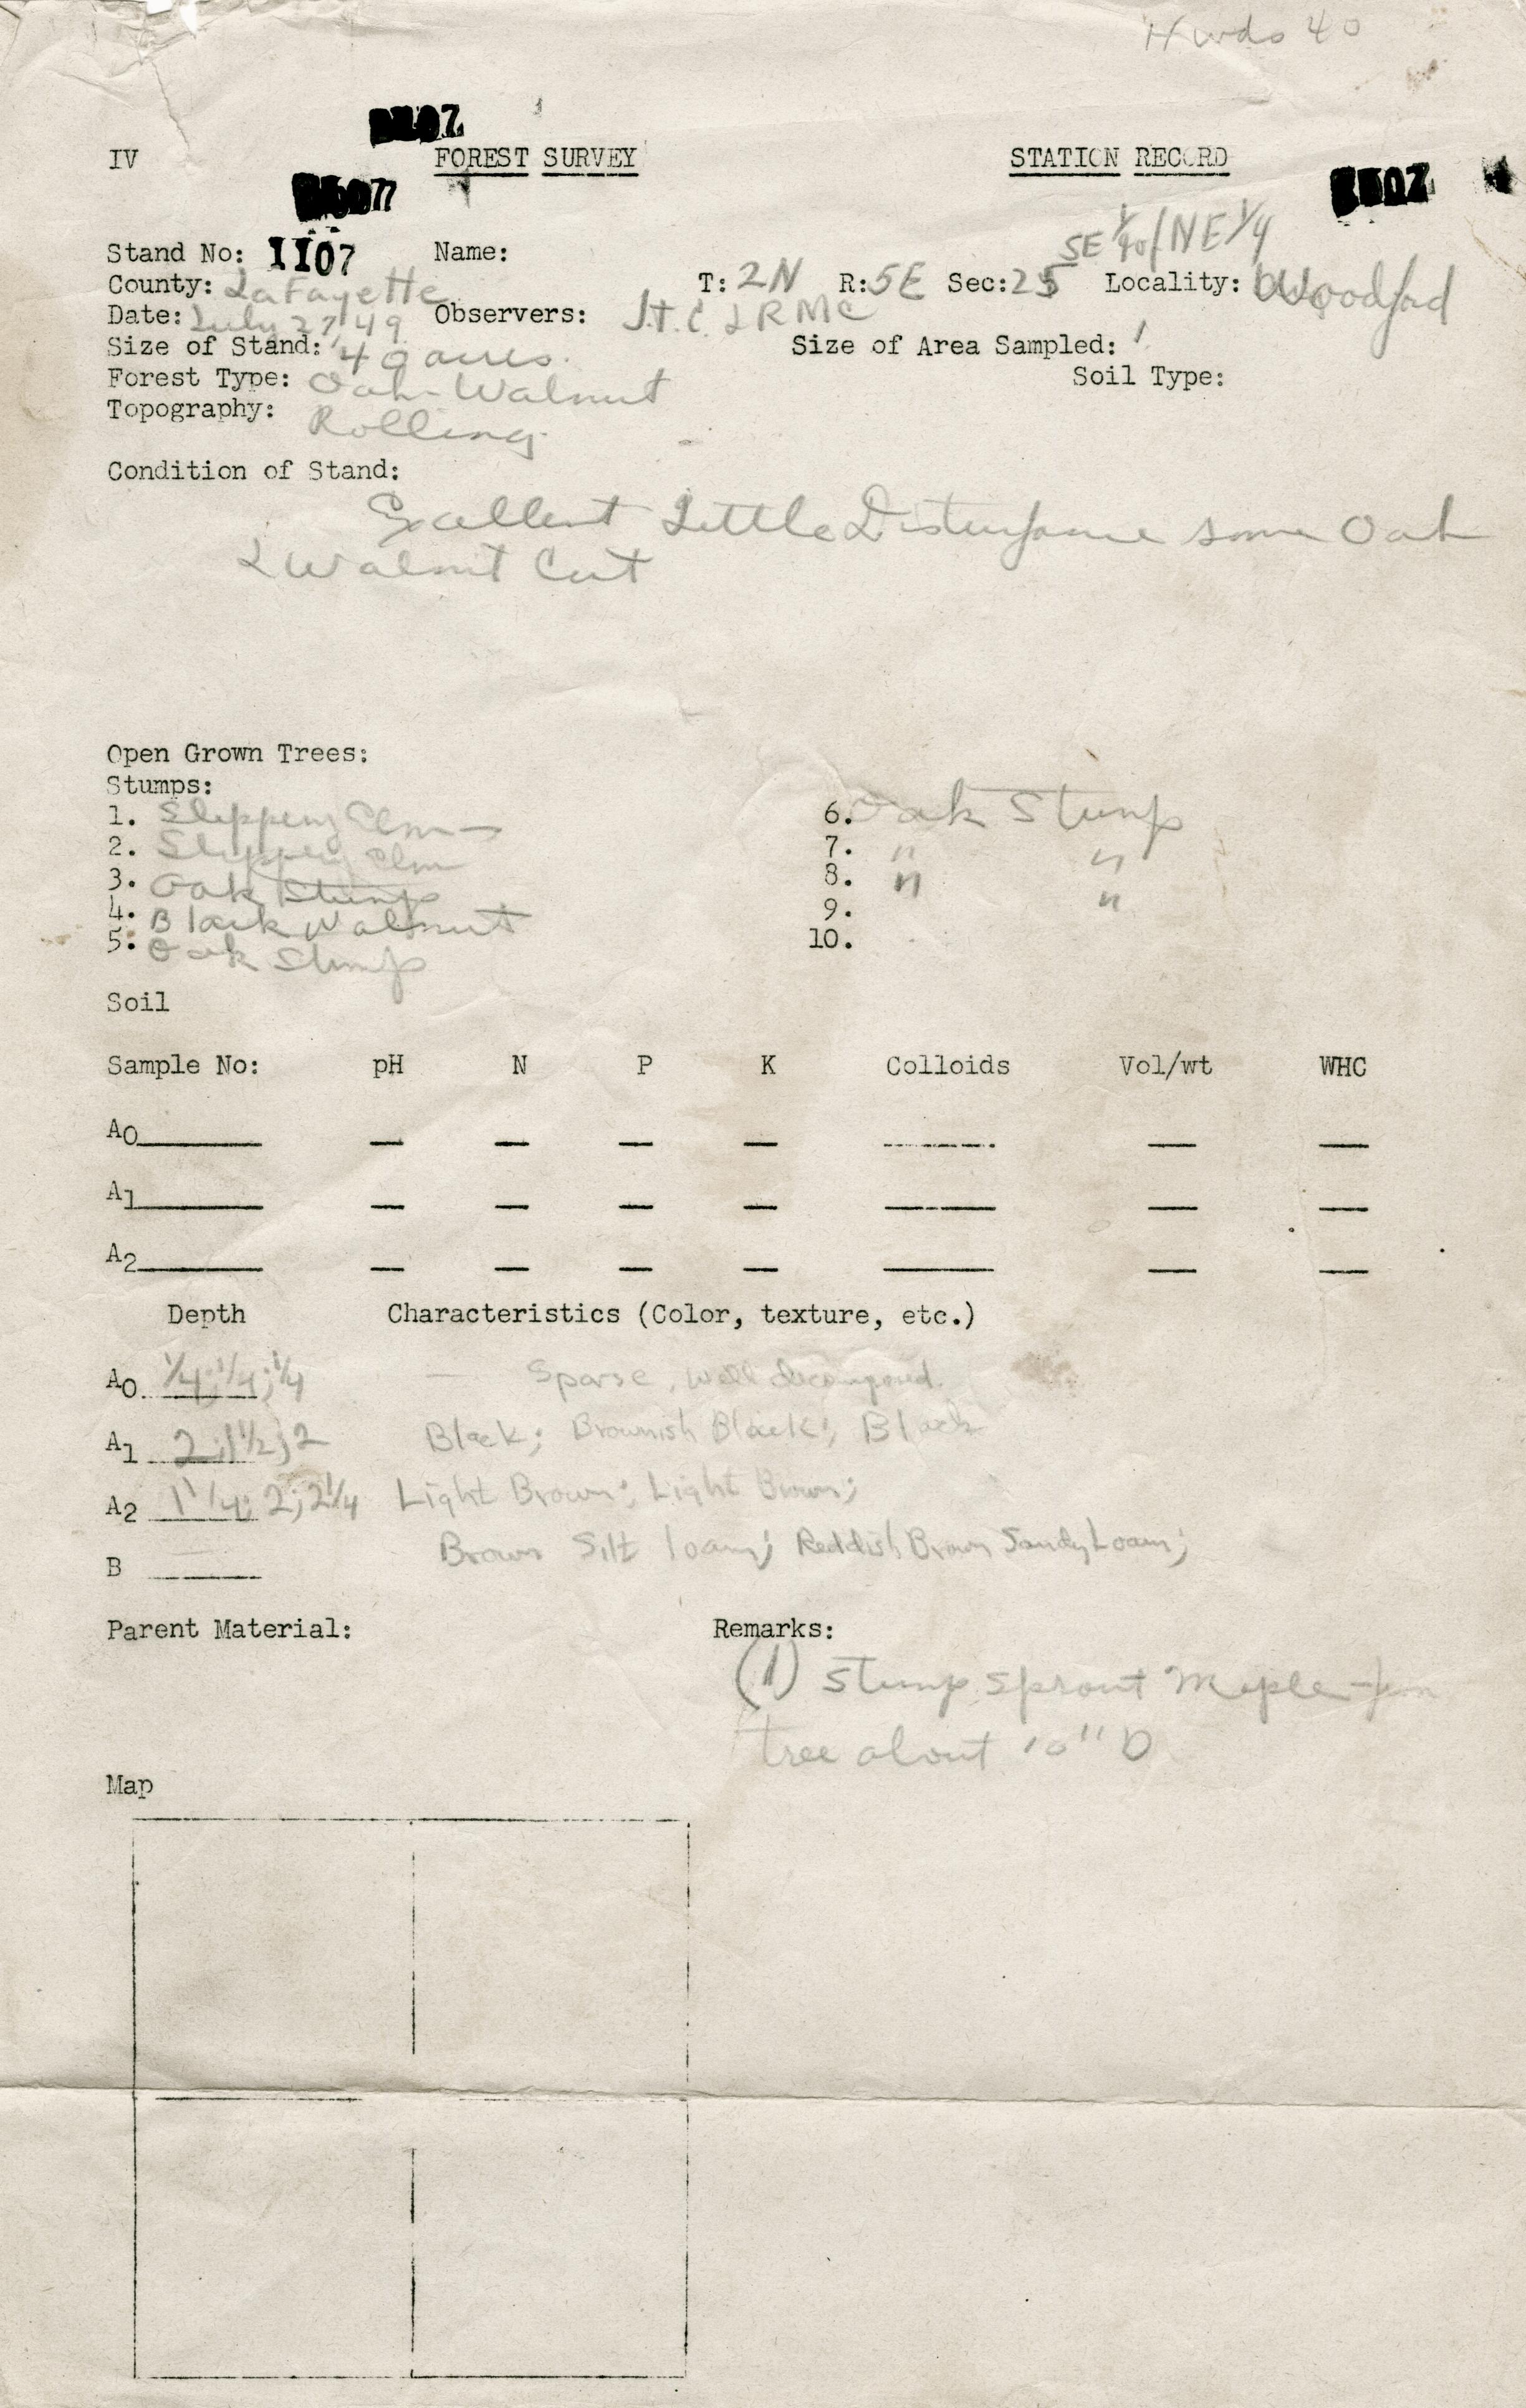 Hwds 40
IV FOREST SURVEY STATION RECORD
SE 1/4 of NE 1/4
Stand No: 1107 Name:
County: LaFayette T: 2N R: 5E Sec: 25 Locality: Woodford
Date: July 27, 49 Observers: J.T.C & RMC
Size of Stand: 40 acres. Size of Area Sampled: 1
Forest Type: Oak-Walnut Soil Type:
Topography: Rolling
Condition of Stand:
Excellent Little Disturbance some Oak
& Walnut Cut
Open Grown Trees:
Stumps:
1. Slippery Elm 6. Oak Stump
2. Slippery Elm 7. " "
3. Oak Stump 8. " "
4. Black Walnut 9.
5. Oak Stump 10.
Soil
Sample No: pH N P K Colloids Vol/wt WHC
A0
A1
A2
Depth Characteristics (Color, texture, etc.)
A0 1/4; 1/4; 1/4 — Sparse, well decomposed.
A1 2; 1 1/2; 2 Black; Brownish Black; Black
A2 1 1/4; 2; 2 1/4 Light Brown; Light Brown;
B Brown Silt loam; Reddish Brown Sandy Loam;
Parent Material: Remarks:
(1) Stump Sprout Maple
tree about 10" D
Map